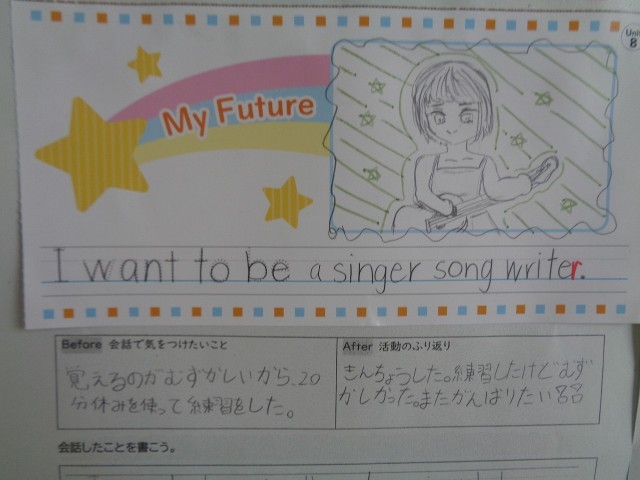 Unit
8
My Future
I want to be a singer song writer.
Before 会話で気をつけたいこと
覚えるのがむずかしいから、20
分休みを使って練習をした。
After 活動のふり返り
きんちょうした。練習したけどむず
かしかった。またがんばりたい
会話したことを書こう。